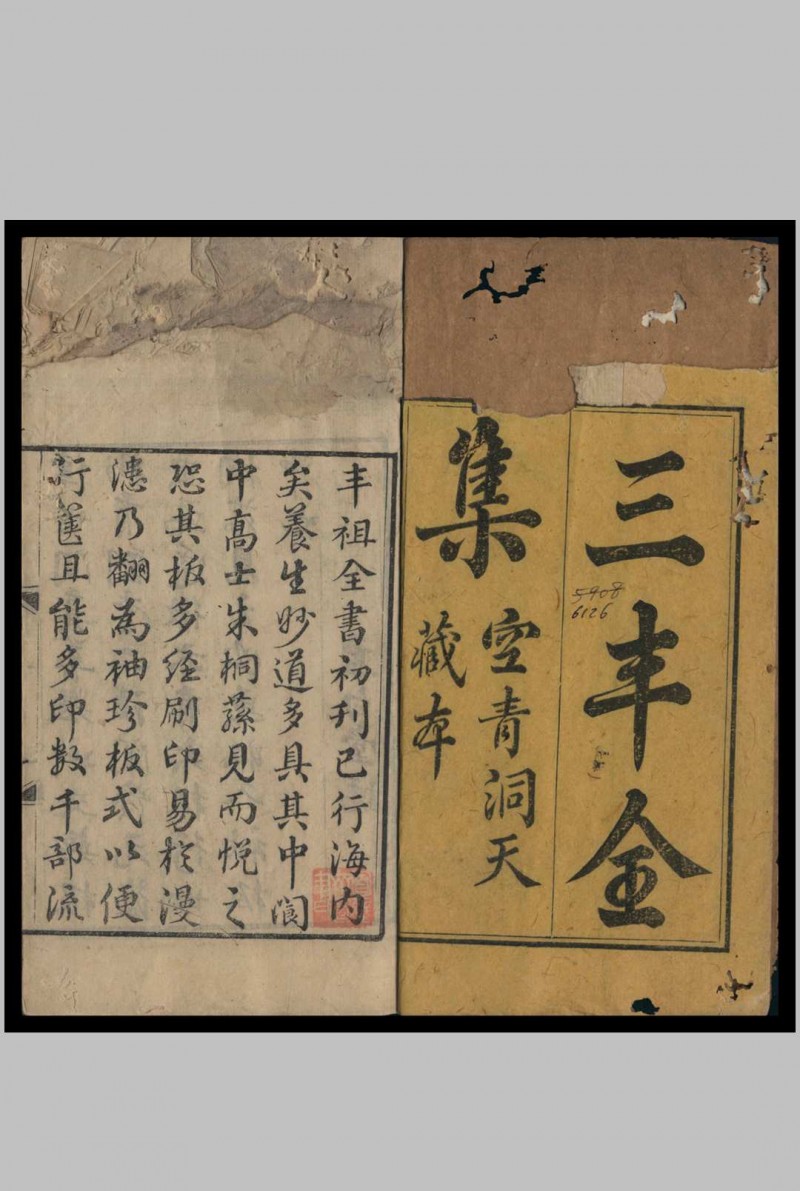 三丰全
集
空青洞天
藏本
5908
6126
丰祖全書初刋已行海内
矣養生妙道多具其中閬
中髙士朱桐蓀見而悦之
恐其板多經刷印易於漫
漶乃翻為袖珍板式以便
行篋且能多印數千部流